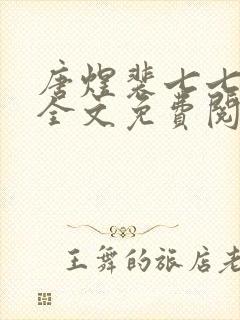 唐煌裴七七
全文免费阅
王舞的旅店老